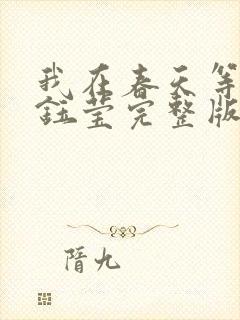 我在春天等
钰莹完整版
隋九